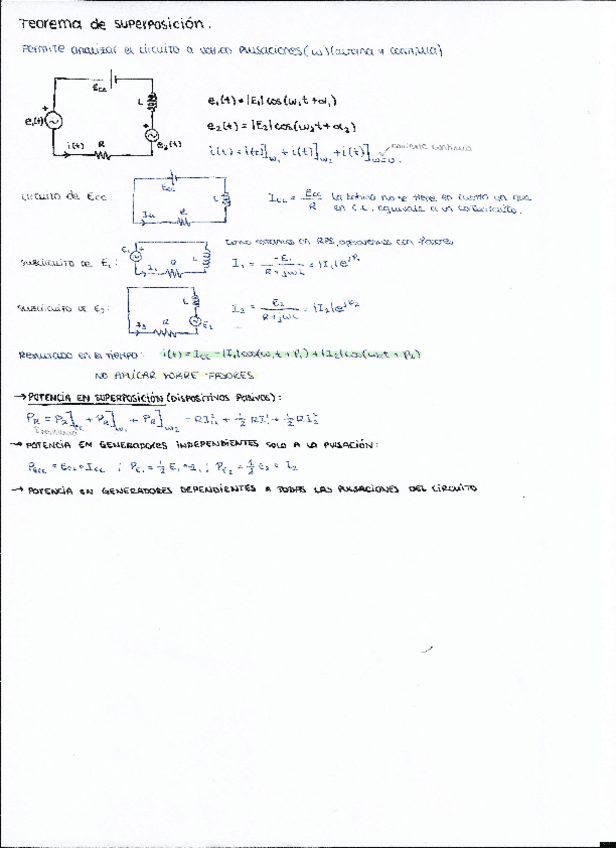 Teorema de superposición.
Permite analizar el circuito a varias pulsaciones (ω) (alterna y continua)
Ecc
L
e₁(t)
e₂(t)
i(t)
R
e₁(t) = |E₁| cos(ω₁t + α₁)
e₂(t) = |E₂| cos(ω₂t + α₂)
i(t) = i(t)]ω₁ + i(t)]ω₂ + i(t)]ω=0. corriente continua
circuito de Ecc:
Ecc
L
Icc
R
Icc = Ecc/R La bobina no se tiene en cuenta ya que
en C.C. equivale a un cortocircuito.
como estamos en RPS, operaremos con fasores
subcircuito de E₁:
E₁
I₁
R
L
I₁ = -E₁/(R+jωL) = |I₁|e^jβ₁
subcircuito de E₂:
I₂
R
L
E₂
I₂ = E₂/(R+jωL) = |I₂|e^jβ₂
Resultado en el tiempo: i(t) = Icc - |I₁|cos(ω₁t + β₁) + |I₂|cos(ω₂t + β₂)
NO APLICAR SOBRE FASORES
→ POTENCIA EN SUPERPOSICIÓN (DISPOSITIVOS PASIVOS):
PR = PR]cc + PR]ω₁ + PR]ω₂ = RI²cc + ½ RI₁² + ½ RI₂²
→ POTENCIA EN GENERADORES INDEPENDIENTES SOLO A LA PULSACIÓN:
PEcc = Ecc · Icc ; PE₁ = ½ E₁ · I₁ ; PE₂ = ½ E₂ · I₂
→ POTENCIA EN GENERADORES DEPENDIENTES A TODAS LAS PULSACIONES DEL CIRCUITO